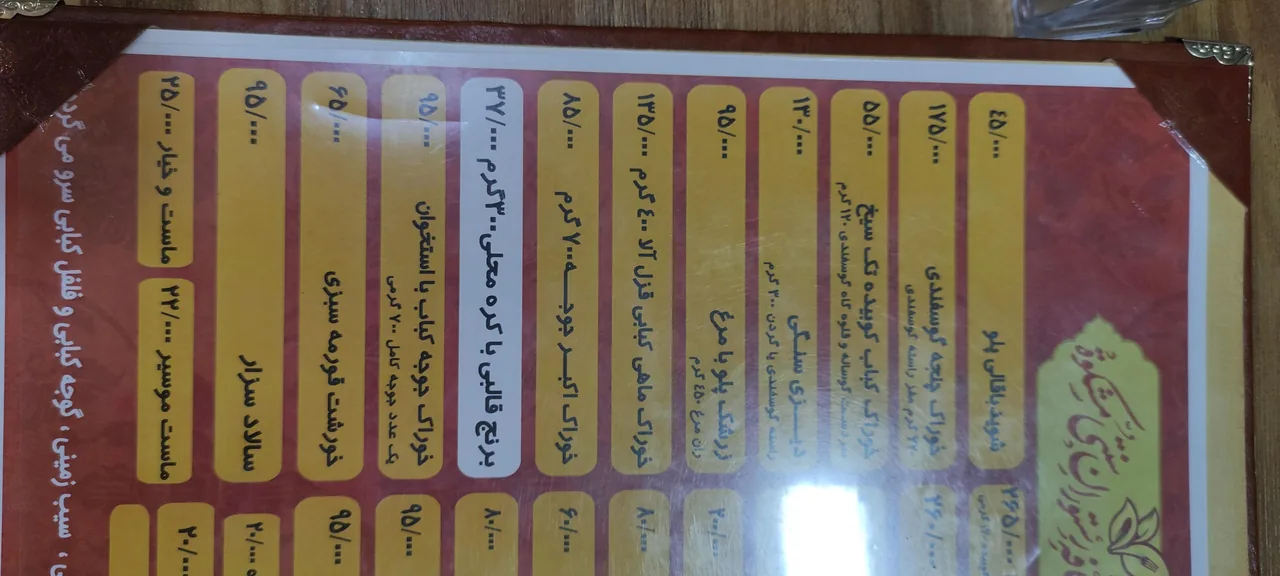 رستوران سنتی مشکوة
شویدباقالی پلو ٤۵/۰۰۰
خوراک چلچه گوسفندی ۱۷۵/۰۰۰
خوراک کباب کوبیده تک سیخ ۵۵/۰۰۰
سردست گوساله و قلوه گاه گوسفندی ۱۲۰ گرم
دیــزی سنگی ۱۳۰/۰۰۰
راسته گوسفندی با گردن ۳۰۰ گرم
زرشک پلو با مرغ ۹۵/۰۰۰
ران مرغ ٤۵۰ گرم
خوراک ماهی کبابی قزل آلا ٤۰۰ گرم ۱۳۵/۰۰۰
خوراک اکبــر جوجــه ۷۰۰ گرم ۸۵/۰۰۰
برنج قالبی با کره محلی ۳۰۰ گرم ۳۷/۰۰۰
خوراک جوجه کباب با استخوان ۹۵/۰۰۰
یک عدد جوجه کامل ۷۰۰ گرمی
خورشت قورمه سبزی ۶۵/۰۰۰
سالاد سزار ۹۵/۰۰۰
ماست موسیر ۲۲/۰۰۰
ماست و خیار ۲۵/۰۰۰
۲۶۵/۰۰۰
۲۶۰/۰۰۰
۲۰۰/۰۰۰
۸۰/۰۰۰
۶۰/۰۰۰
۸۰/۰۰۰
۹۵/۰۰۰
۹۵/۰۰۰
۲۰/۰۰۰
۲۰/۰۰۰
، سیب زمینی ، گوجه کبابی و فلفل کبابی سرو می گرد